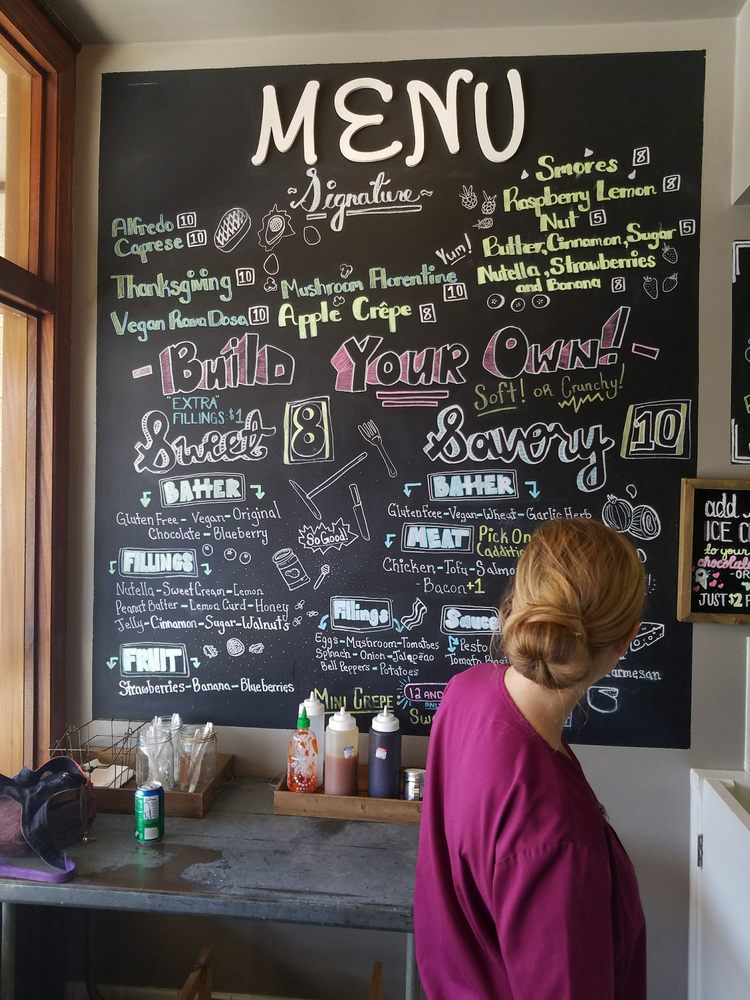 MENU
~Signature~
Alfredo 10
Caprese 10
Thanksgiving 10
Vegan Rava Dosa 10
Mushroom Florentine
10
Apple Crêpe 8
Yum!
Smores 8
Raspberry Lemon 8
Nut 5
Butter, Cinnamon, Sugar 5
Nutella, Strawberries
and Banana 8
- Build Your Own! -
"EXTRA"
FILLINGS $1
Soft! or Crunchy!
Sweet 8
BATTER
Gluten Free - Vegan - Original
Chocolate - Blueberry
FILLINGS
Nutella - Sweet Cream - Lemon
Peanut Butter - Lemon Curd - Honey
Jelly - Cinnamon - Sugar - Walnuts
FRUIT
Strawberries - Banana - Blueberries
So Good!
Savory 10
BATTER
Glutenfree - Vegan - Wheat - Garlic Herb
MEAT Pick On
Chicken - Tofu
- Bacon +1
Fillings
Eggs - Mushroom - Tomatoes
Spinach - Onion - Jalapeño
Bell Peppers - Potatoes
Pesto
Tomato
MINI CREPE
12 AND
add
ICE
to your
chocolat
- OR
JUST $2